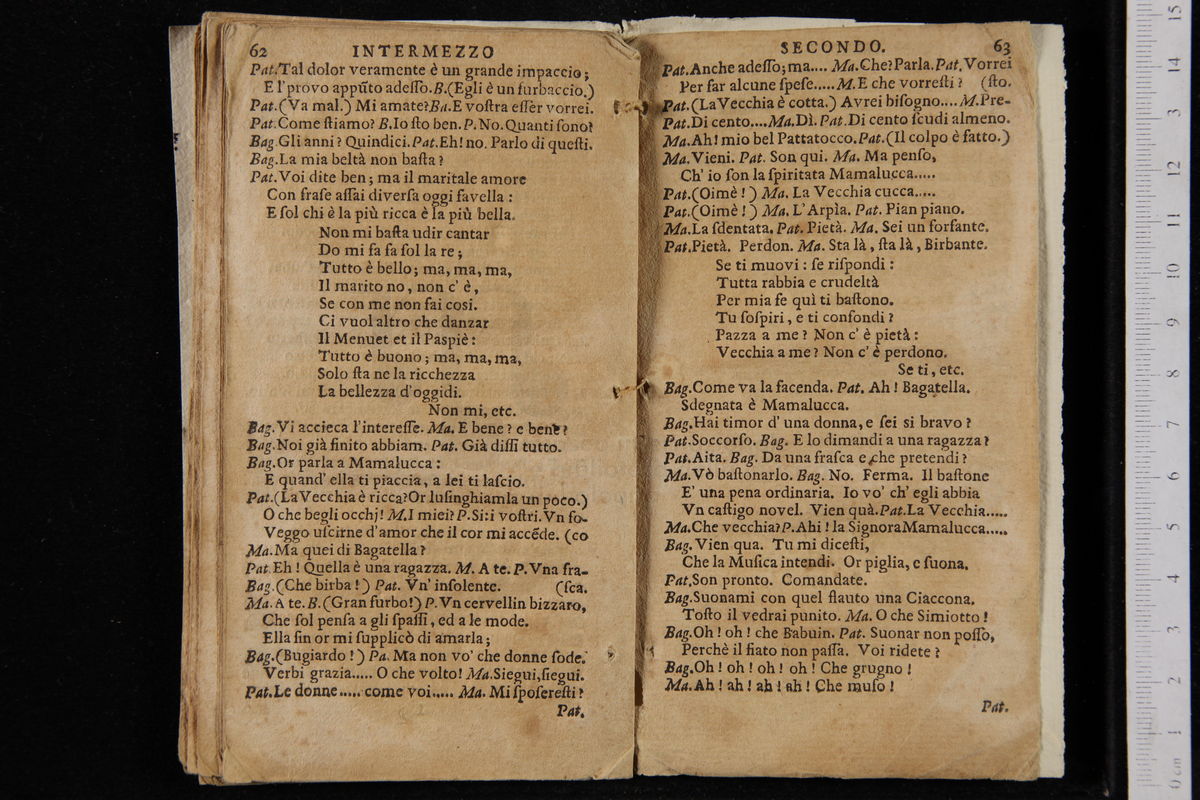 62 INTERMEZZO
Pat.Tal dolor veramente è un grande impaccio;
E l'provo appūto adeſſo.B.(Egli è un furbaccio.)
Pat.(Va mal.) Mi amate?Ba.E voſtra eſſer vorrei.
Pat.Come ſtiamo? B.Io ſto ben. P. No. Quanti ſono?
Bag.Gli anni? Quindici.Pat.Eh! no. Parlo di queſti.
Bag.La mia beltà non baſta?
Pat.Voi dite ben; ma il maritale amore
Con fraſe aſſai diverſa oggi favella:
E ſol chi è la più ricca è la più bella.
Non mi baſta udir cantar
Do mi fa fa ſol la re;
Tutto è bello; ma, ma, ma,
Il marito no, non c' è,
Se con me non fai cosi.
Ci vuol altro che danzar
Il Menuet et il Paspiè:
Tutto è buono; ma, ma, ma,
Solo ſta ne la ricchezza
La bellezza d'oggidi.
Non mi, etc.
Bag.Vi accieca l'intereſſe. Ma. E bene? e bene?
Bag.Noi già finito abbiam. Pat. Già diſſi tutto.
Bag.Or parla a Mamalucca:
E quand' ella ti piaccia, a lei ti laſcio.
Pat.(La Vecchia è ricca?Or luſinghiamla un poco.)
O che begli occhj! M.I miei? P.Si:i voſtri.Vn fo-
Veggo uſcirne d'amor che il cor mi accēde. (co
Ma.Ma quei di Bagatella?
Pat.Eh! Quella è una ragazza. M. A te. P. Vna fra-
Bag.(Che birba!) Pat. Vn' inſolente. (ſca.
Ma.A te. B.(Gran furbo!) P. Vn cervellin bizzaro,
Che ſol penſa a gli ſpaſſi, ed a le mode.
Ella ſin or mi ſupplicò di amarla;
Bag.(Bugiardo!) Pa. Ma non vo' che donne ſode.
Verbi grazia..... O che volto! Ma.Siegui,ſiegui.
Pat.Le donne..... come voi..... Ma. Mi ſpoſereſti?
Pat.
SECONDO. 63
Pat.Anche adeſſo; ma.... Ma.Che?Parla.Pat.Vorrei
Per far alcune ſpeſe..... M.E che vorreſti? (ſto.
Pat.(La Vecchia è cotta.) Avrei biſogno.... M.Pre-
Pat.Di cento....Ma.Dì. Pat.Di cento ſcudi almeno.
Ma.Ah! mio bel Pattatocco.Pat.(Il colpo è fatto.)
Ma.Vieni. Pat. Son qui. Ma. Ma penſo,
Ch' io ſon la ſpiritata Mamalucca.....
Pat.(Oimè!) Ma. La Vecchia cucca.....
Pat.(Oimè!) Ma. L' Arpìa. Pat. Pian piano.
Ma.La ſdentata. Pat. Pietà. Ma. Sei un forfante.
Pat.Pietà. Perdon. Ma. Sta là, ſta là, Birbante.
Se ti muovi: ſe riſpondi:
Tutta rabbia e crudeltà
Per mia fe quì ti baſtono.
Tu ſoſpiri, e ti confondi?
Pazza a me? Non c' è pietà:
Vecchia a me? Non c' è perdono.
Se ti, etc.
Bag.Come va la facenda. Pat. Ah! Bagatella.
Sdegnata è Mamalucca.
Bag.Hai timor d' una donna, e ſei si bravo?
Pat.Soccorſo. Bag. E lo dimandi a una ragazza?
Pat.Aita. Bag. Da una fraſca e che pretendi?
Ma.Vò baſtonarlo. Bag. No. Ferma. Il baſtone
E' una pena ordinaria. Io vo' ch' egli abbia
Vn caſtigo novel. Vien quà.Pat.La Vecchia.....
Ma.Che vecchia?P.Ahi! la Signora Mamalucca.....
Bag.Vien qua. Tu mi diceſti,
Che la Muſica intendi. Or piglia, e ſuona.
Pat.Son pronto. Comandate.
Bag.Suonami con quel flauto una Ciaccona.
Toſto il vedrai punito. Ma. O che Simiotto!
Bag.Oh! oh! che Babuin. Pat. Suonar non poſſo,
Perchè il fiato non paſſa. Voi ridete?
Bag.Oh! oh! oh! oh! Che grugno!
Ma.Ah! ah! ah! ah! Che muſo!
Pat.
15
14
13
12
11
10
9
8
7
6
5
4
3
2
1
0 cm